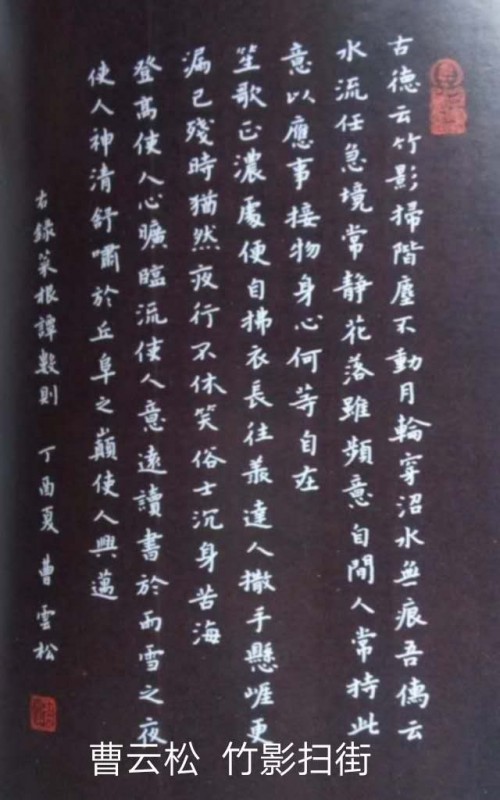 古德云竹影掃階塵不動月輪穿沼水無痕吾儒云
水流任急境常静花落雖頻意自閒人常持此
意以應事接物身心何等自在
笙歌正濃處便自拂衣長往羨達人撒手懸崖更
漏已殘時猶然夜行不休笑俗士沉身苦海
登高使人心曠臨流使人意遠讀書於雨雪之夜
使人神清舒嘯於丘阜之巔使人興邁
右錄菜根譚數則 丁酉夏 曹雲松
曹云松 竹影扫街